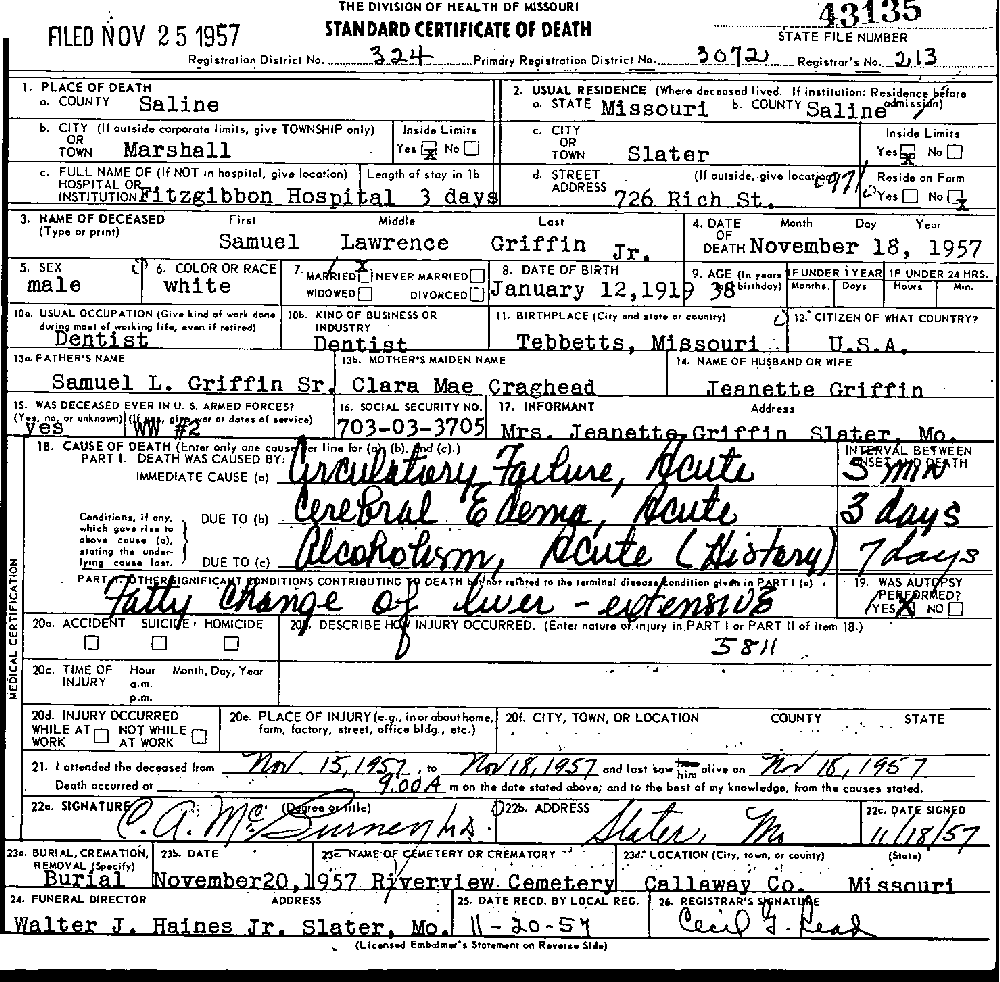 THE DIVISION OF HEALTH OF MISSOURI
43135
FILED NOV 25 1957
STANDARD CERTIFICATE OF DEATH
STATE FILE NUMBER
Registration District No. 324 Primary Registration District No. 3072 Registrar's No. 213
1. PLACE OF DEATH
a. COUNTY Saline
2. USUAL RESIDENCE (Where deceased lived. If institution: Residence before admission)
a. STATE Missouri b. COUNTY Saline
b. CITY (If outside corporate limits, give TOWNSHIP only) OR TOWN Marshall
Inside Limits Yes X No
c. CITY OR TOWN Slater
Inside Limits Yes X No
c. FULL NAME OF (If NOT in hospital, give location) HOSPITAL OR INSTITUTION Fitzgibbon Hospital
Length of stay in 1b 3 days
d. STREET ADDRESS (If outside, give location) 726 Rich St.
Reside on Farm Yes No X
3. NAME OF DECEASED (Type or print)
First Middle Last
Samuel Lawrence Griffin Jr.
4. DATE OF DEATH Month Day Year
November 18, 1957
5. SEX male
6. COLOR OR RACE white
7. MARRIED X NEVER MARRIED
WIDOWED DIVORCED
8. DATE OF BIRTH January 12, 1919
9. AGE (In years birthday) 38
IF UNDER 1 YEAR Months Days
IF UNDER 24 HRS. Hours Min.
10a. USUAL OCCUPATION (Give kind of work done during most of working life, even if retired) Dentist
10b. KIND OF BUSINESS OR INDUSTRY Dentist
11. BIRTHPLACE (City and state or country) Tebbetts, Missouri
12. CITIZEN OF WHAT COUNTRY? U.S.A.
13a. FATHER'S NAME Samuel L. Griffin Sr.
13b. MOTHER'S MAIDEN NAME Clara Mae Craghead
14. NAME OF HUSBAND OR WIFE Jeanette Griffin
15. WAS DECEASED EVER IN U. S. ARMED FORCES? (Yes, no, or unknown) (If yes, give war or dates of service) yes WW #2
16. SOCIAL SECURITY NO. 703-03-3705
17. INFORMANT Address
Mrs. Jeanette Griffin Slater, Mo.
MEDICAL CERTIFICATION
18. CAUSE OF DEATH (Enter only one cause per line for (a), (b), and (c).)
INTERVAL BETWEEN ONSET AND DEATH
PART I. DEATH WAS CAUSED BY:
IMMEDIATE CAUSE (a) Circulatory Failure, Acute 5 min
Conditions, if any, which gave rise to above cause (a), stating the underlying cause last.
DUE TO (b) Cerebral Edema, Acute 3 days
DUE TO (c) Alcoholism, Acute (History) 7 days
PART II. OTHER SIGNIFICANT CONDITIONS CONTRIBUTING TO DEATH but not related to the terminal disease condition given in PART I (a)
Fatty change of liver - extensive
19. WAS AUTOPSY PERFORMED? YES X NO
20a. ACCIDENT SUICIDE HOMICIDE
20b. DESCRIBE HOW INJURY OCCURRED. (Enter nature of injury in PART I or PART II of item 18.)
5811
20c. TIME OF INJURY Hour a.m. p.m. Month, Day, Year
20d. INJURY OCCURRED WHILE AT WORK NOT WHILE AT WORK
20e. PLACE OF INJURY (e.g., in or about home, farm, factory, street, office bldg., etc.)
20f. CITY, TOWN, OR LOCATION COUNTY STATE
21. I attended the deceased from Nov 15, 1957 to Nov 18, 1957 and last saw him alive on Nov 18, 1957
Death occurred at 9:00 A m on the date stated above; and to the best of my knowledge, from the causes stated.
22a. SIGNATURE (Degree or title) C. A. McBurney M.D.
22b. ADDRESS Slater, Mo
22c. DATE SIGNED 11/18/57
23a. BURIAL, CREMATION, REMOVAL (Specify) Burial
23b. DATE November 20, 1957
23c. NAME OF CEMETERY OR CREMATORY Riverview Cemetery
23d. LOCATION (City, town, or county) (State) Callaway Co. Missouri
24. FUNERAL DIRECTOR ADDRESS
Walter J. Haines Jr. Slater, Mo.
25. DATE RECD. BY LOCAL REG. 11-20-57
26. REGISTRAR'S SIGNATURE Cecil G. Read
(Licensed Embalmer's Statement on Reverse Side)